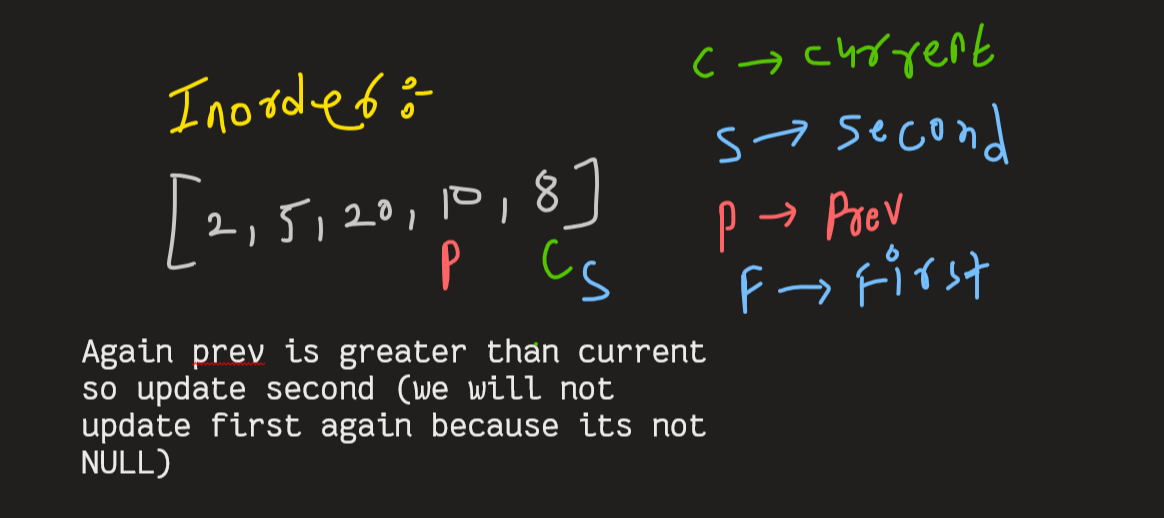 Inorder :-
[2, 5, 20, 10, 8]
P C S
C → current
S → Second
P → Prev
F → First
Again prev is greater than current
so update second (we will not
update first again because its not
NULL)